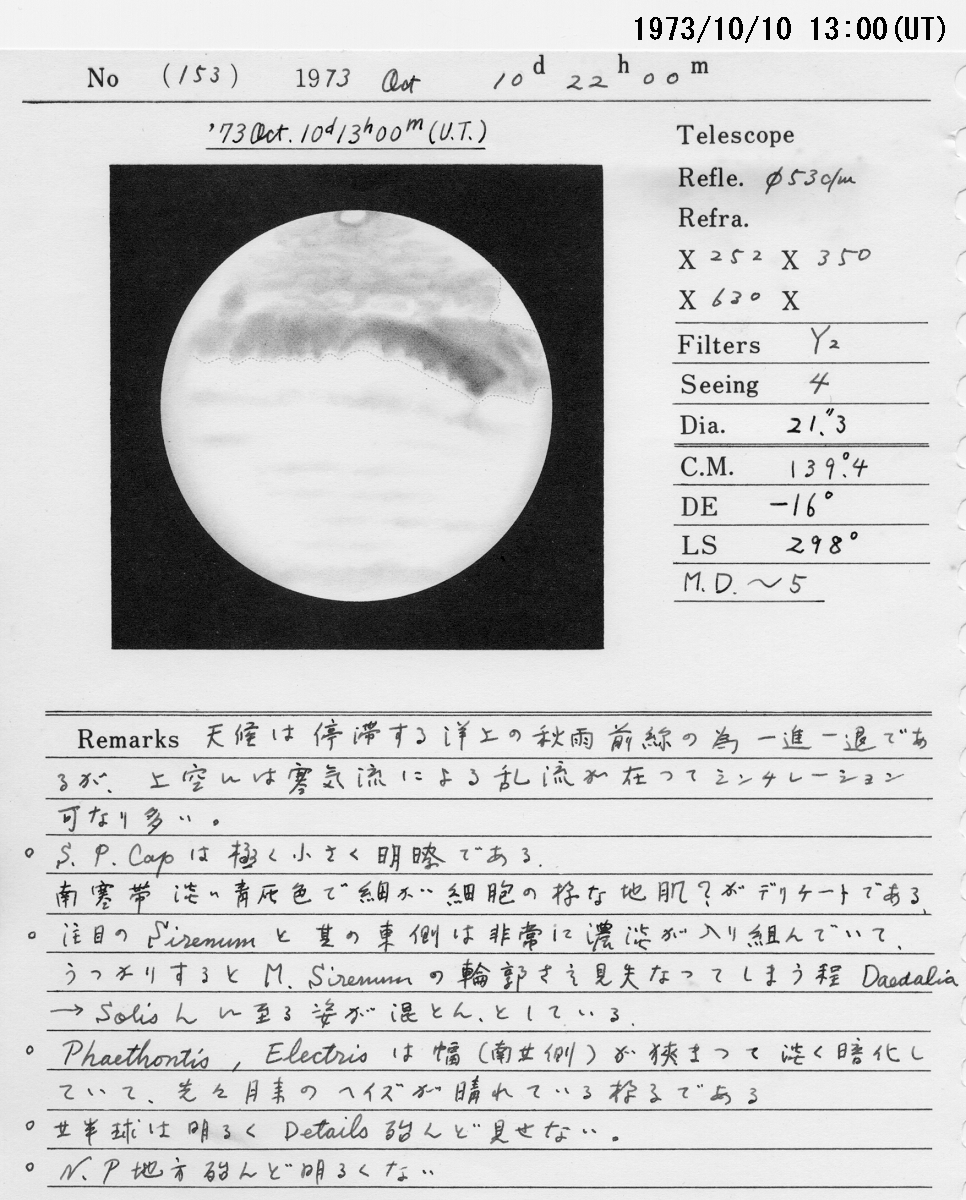 1973/10/10 13:00(UT)
No (153) 1973 Oct 10d 22h 00m
'73 Oct. 10d13h00m(U.T.)
Telescope
Refle. φ53c/m
Refra.
X 252 X 350
X 630 X
Filters Y2
Seeing 4
Dia. 21."3
C.M. 139.°4
DE -16°
LS 298°
M.D. ～5
Remarks 天候は停滞する洋上の秋雨前線の為一進一退であ
るが、上空には寒気流による乱流が在ってシンチレーション
可なり多い。
○ S.P.Capは極く小さく明瞭である.
南寒帯 淡い青灰色で細かい細胞の様な地肌?がデリケートである、
○ 注目のSirenumと其の東側は非常に濃淡が入り組んでいて、
うっかりするとM.Sirenumの輪郭さえ見失なってしまう程 Daedalia
→Solis に至る姿が混とん、としている.
○ Phaethontis, Electrisは幅(南北側)が狭まって淡く暗化し
ていて、先々月末のヘイズが晴れている様である
○ 北半球は明るくDetails 殆んど見せない。
○ N.P地方殆んど明るくない